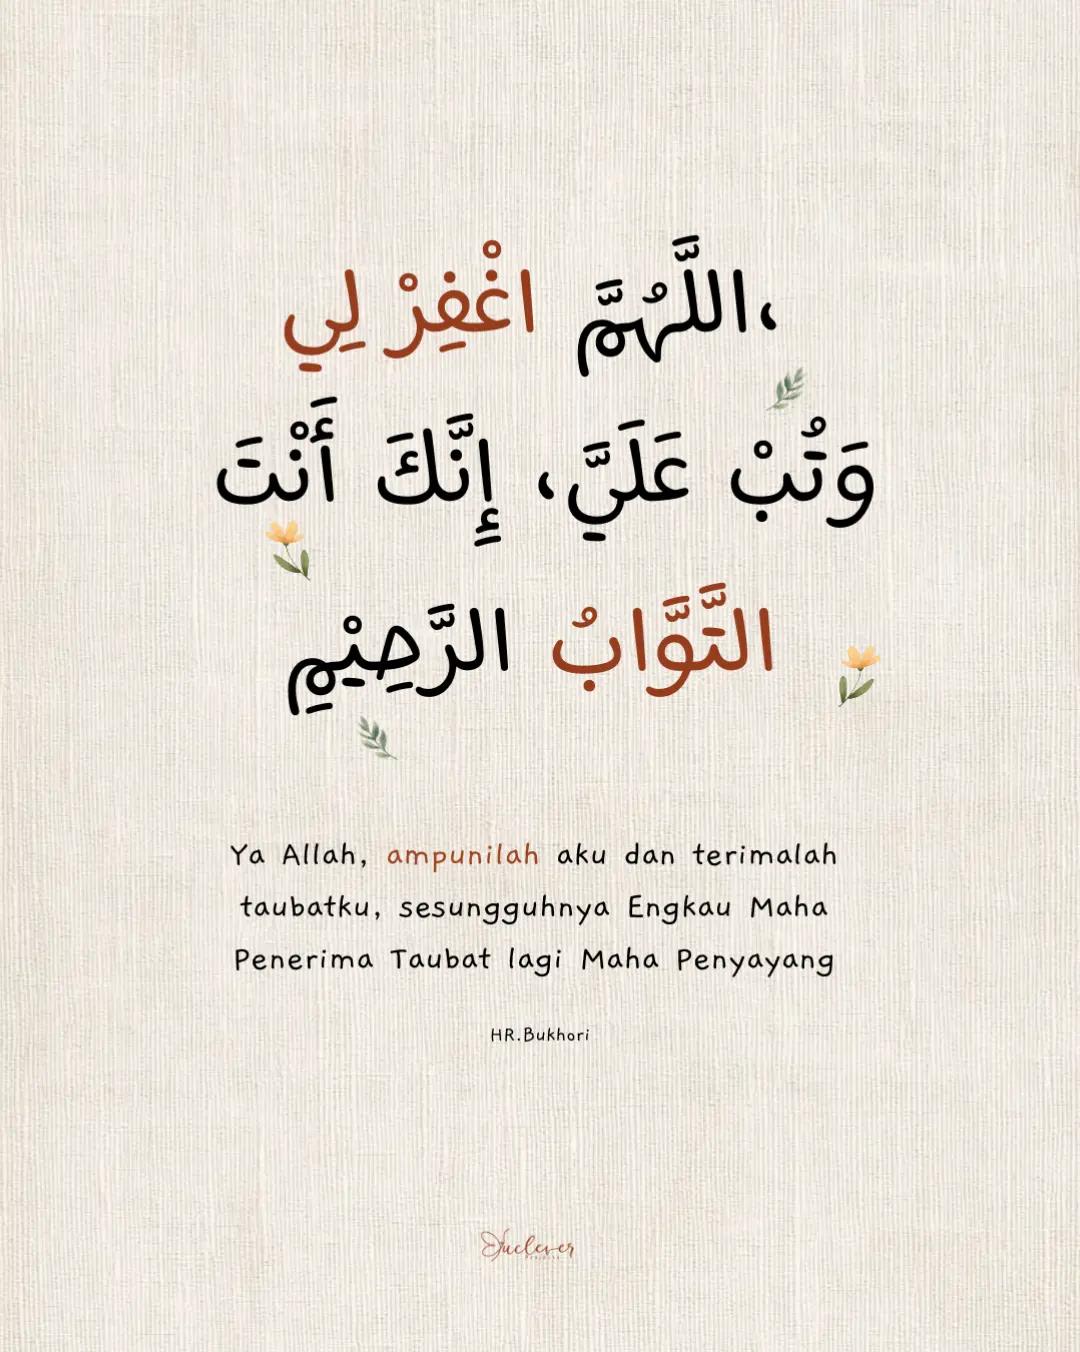 ،اللَّهُمَّ اغْفِرْ لِي
وَتُبْ عَلَيَّ، إِنَّكَ أَنْتَ
التَّوَّابُ الرَّحِيْمِ
Ya Allah, ampunilah aku dan terimalah
taubatku, sesungguhnya Engkau Maha
Penerima Taubat lagi Maha Penyayang
HR.Bukhori